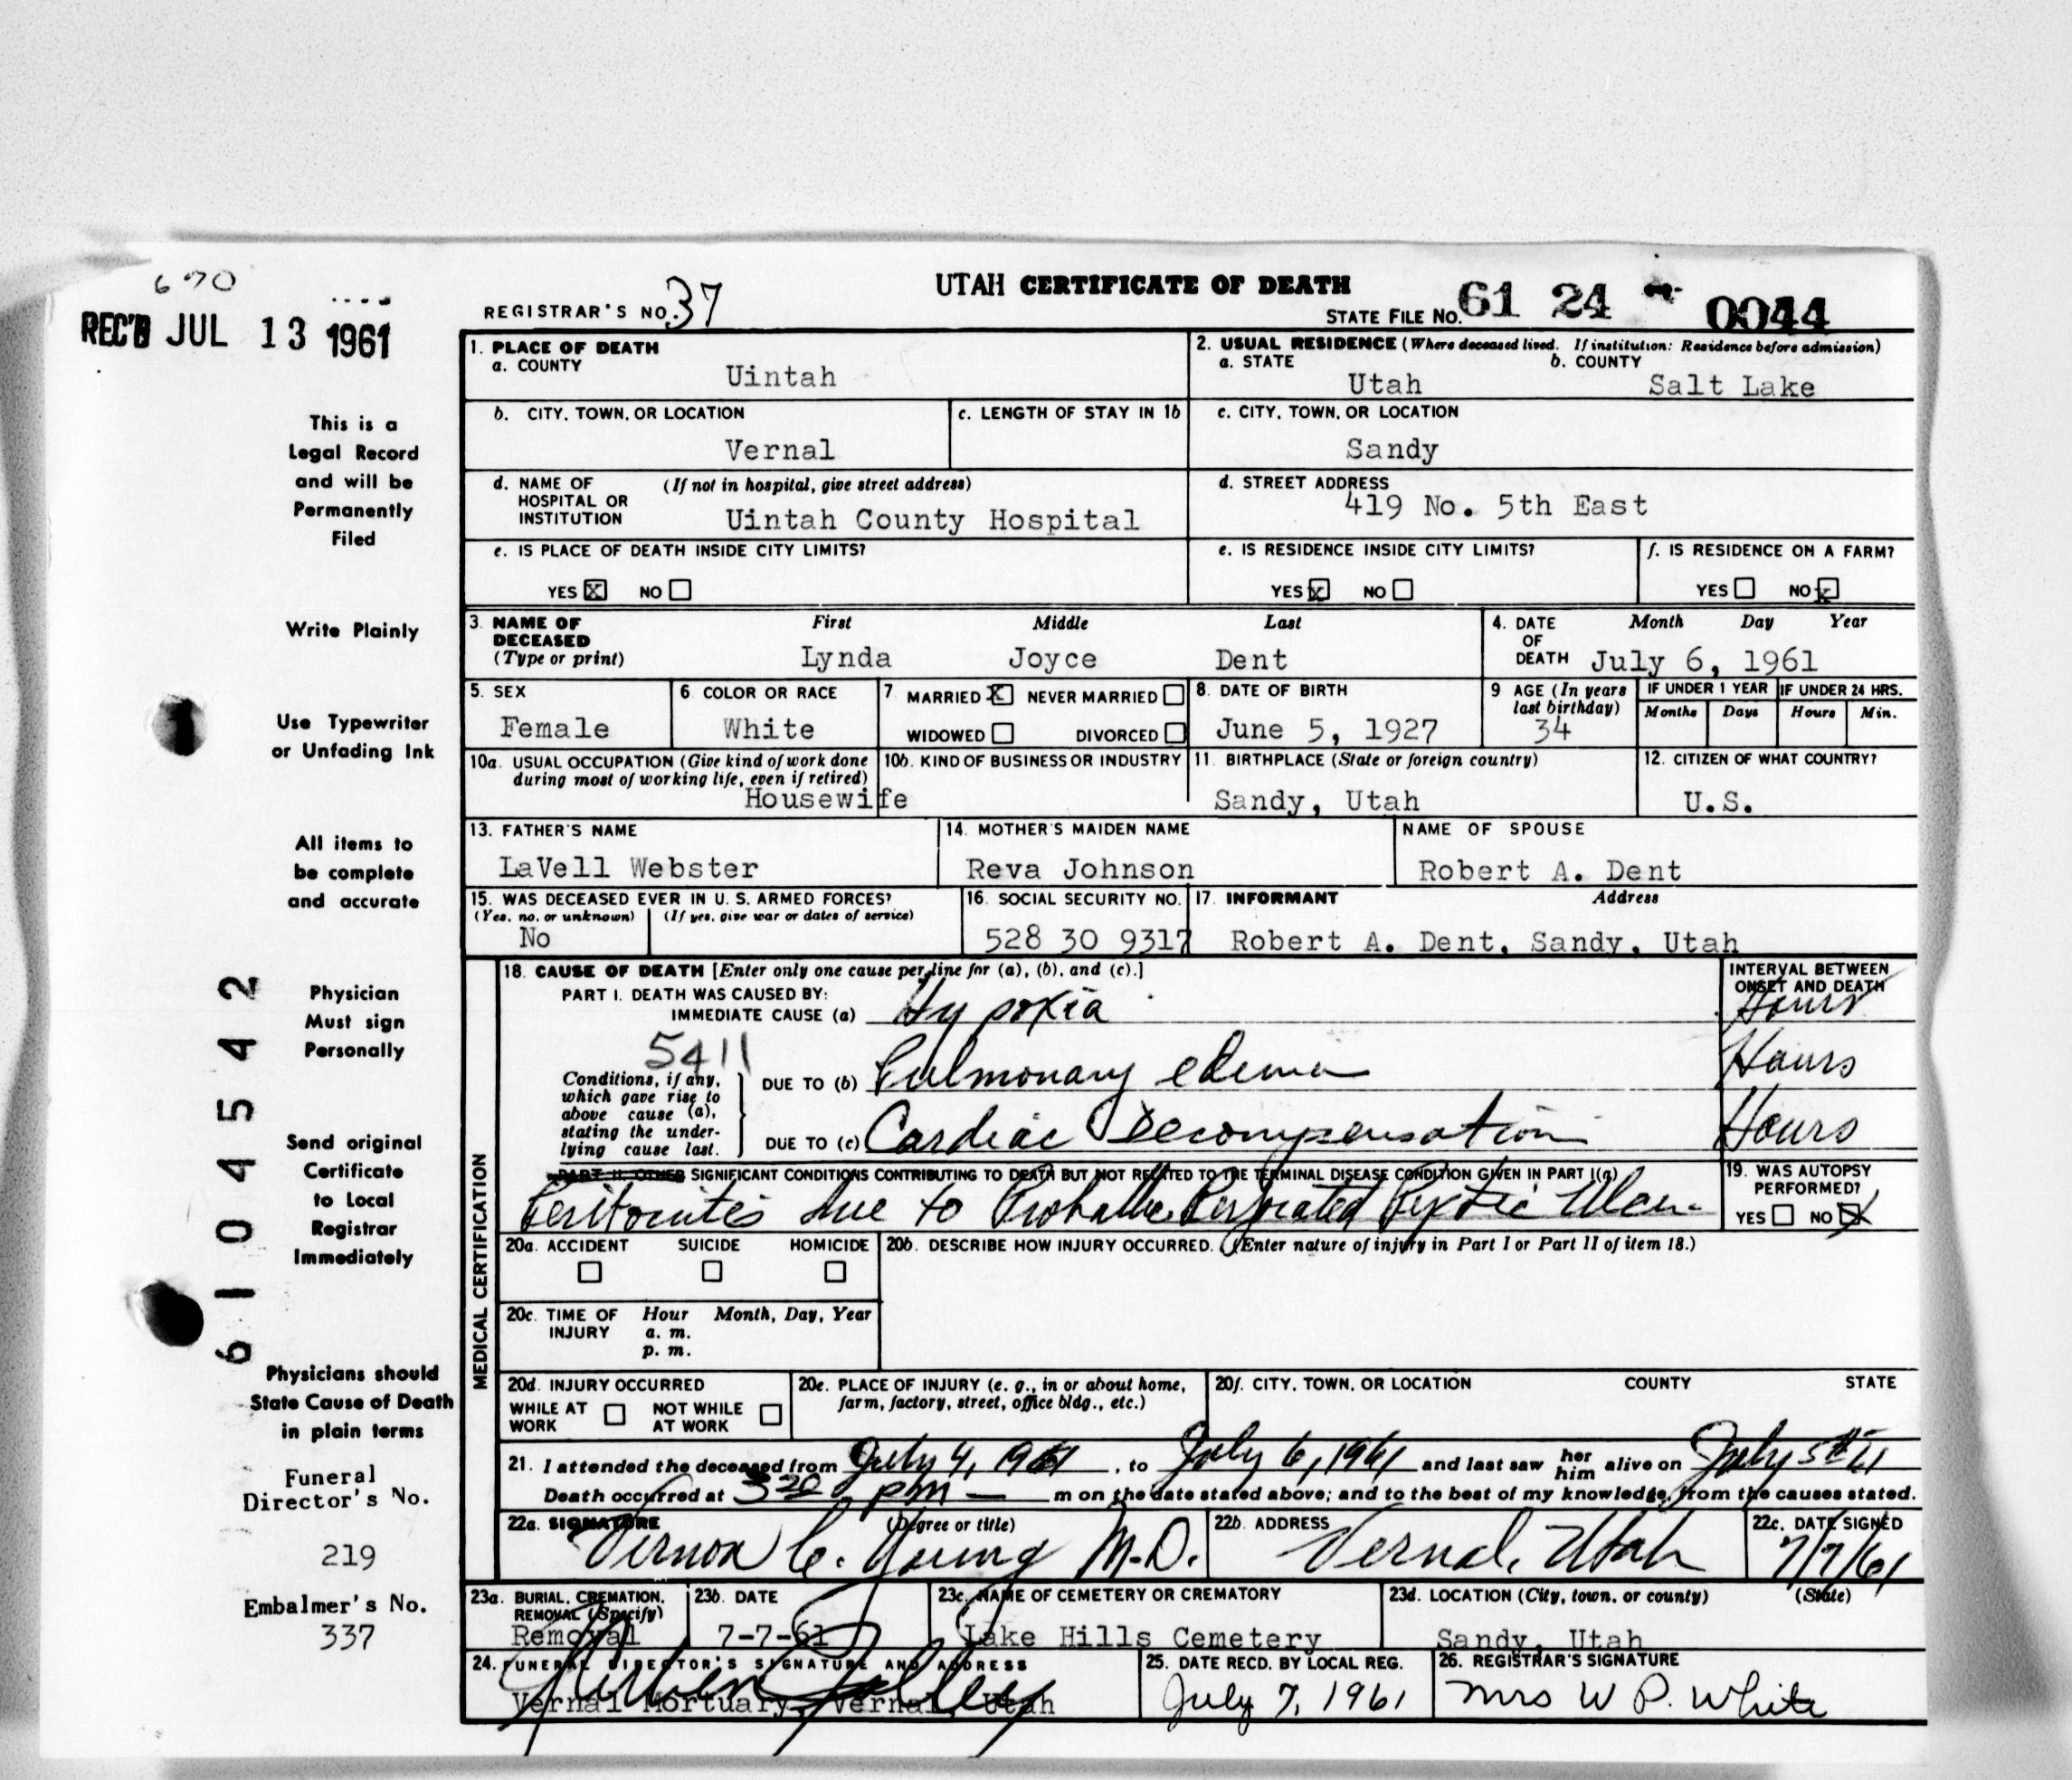 670
REC'D JUL 13 1961
REGISTRAR'S NO. 37
UTAH CERTIFICATE OF DEATH
STATE FILE NO. 61 24 0044
This is a
Legal Record
and will be
Permanently
Filed
Write Plainly
Use Typewriter
or Unfading Ink
All items to
be complete
and accurate
Physician
Must sign
Personally
Send original
Certificate
to Local
Registrar
Immediately
Physicians should
State Cause of Death
in plain terms
Funeral
Director's No.
219
Embalmer's No.
337
61 04542
1. PLACE OF DEATH
a. COUNTY
Uintah
2. USUAL RESIDENCE (Where deceased lived. If institution: Residence before admission)
a. STATE b. COUNTY
Utah Salt Lake
b. CITY, TOWN, OR LOCATION
Vernal
c. LENGTH OF STAY IN 1b
c. CITY, TOWN, OR LOCATION
Sandy
d. NAME OF (If not in hospital, give street address)
HOSPITAL OR
INSTITUTION Uintah County Hospital
d. STREET ADDRESS
419 No. 5th East
e. IS PLACE OF DEATH INSIDE CITY LIMITS?
YES X NO
e. IS RESIDENCE INSIDE CITY LIMITS?
YES X NO
f. IS RESIDENCE ON A FARM?
YES NO X
3. NAME OF First Middle Last
DECEASED
(Type or print) Lynda Joyce Dent
4. DATE Month Day Year
OF
DEATH July 6, 1961
5. SEX
Female
6. COLOR OR RACE
White
7. MARRIED X NEVER MARRIED
WIDOWED DIVORCED
8. DATE OF BIRTH
June 5, 1927
9. AGE (In years
last birthday)
34
IF UNDER 1 YEAR IF UNDER 24 HRS.
Months Days Hours Min.
10a. USUAL OCCUPATION (Give kind of work done
during most of working life, even if retired)
Housewife
10b. KIND OF BUSINESS OR INDUSTRY
11. BIRTHPLACE (State or foreign country)
Sandy, Utah
12. CITIZEN OF WHAT COUNTRY?
U.S.
13. FATHER'S NAME
LaVell Webster
14. MOTHER'S MAIDEN NAME
Reva Johnson
NAME OF SPOUSE
Robert A. Dent
15. WAS DECEASED EVER IN U. S. ARMED FORCES?
(Yes, no, or unknown) (If yes, give war or dates of service)
No
16. SOCIAL SECURITY NO.
528 30 9317
17. INFORMANT Address
Robert A. Dent, Sandy, Utah
MEDICAL CERTIFICATION
18. CAUSE OF DEATH [Enter only one cause per line for (a), (b), and (c).]
PART I. DEATH WAS CAUSED BY:
IMMEDIATE CAUSE (a) Hypoxia
INTERVAL BETWEEN
ONSET AND DEATH
Hours
5411
Conditions, if any,
which gave rise to
above cause (a),
stating the under-
lying cause last.
DUE TO (b) Pulmonary edema
Hours
DUE TO (c) Cardiac Decompensation
Hours
PART II. OTHER SIGNIFICANT CONDITIONS CONTRIBUTING TO DEATH BUT NOT RELATED TO THE TERMINAL DISEASE CONDITION GIVEN IN PART I(a)
Peritonitis due to Probable Perforated Peptic Ulcer
19. WAS AUTOPSY
PERFORMED?
YES NO X
20a. ACCIDENT SUICIDE HOMICIDE
20b. DESCRIBE HOW INJURY OCCURRED. (Enter nature of injury in Part I or Part II of item 18.)
20c. TIME OF Hour Month, Day, Year
INJURY a. m.
p. m.
20d. INJURY OCCURRED
WHILE AT NOT WHILE
WORK AT WORK
20e. PLACE OF INJURY (e. g., in or about home,
farm, factory, street, office bldg., etc.)
20f. CITY, TOWN, OR LOCATION COUNTY STATE
21. I attended the deceased from July 4, 1961, to July 6, 1961 and last saw her him alive on July 5th 61
Death occurred at 3 20 pm — m on the date stated above; and to the best of my knowledge, from the causes stated.
22a. SIGNATURE (Degree or title)
Vernon C. Young M.D.
22b. ADDRESS
Vernal, Utah
22c. DATE SIGNED
7/7/61
23a. BURIAL, CREMATION,
REMOVAL (Specify)
Removal
23b. DATE
7-7-61
23c. NAME OF CEMETERY OR CREMATORY
Lake Hills Cemetery
23d. LOCATION (City, town, or county) (State)
Sandy, Utah
24. FUNERAL DIRECTOR'S SIGNATURE AND ADDRESS
Vernal Mortuary, Vernal, Utah
25. DATE RECD. BY LOCAL REG.
July 7, 1961
26. REGISTRAR'S SIGNATURE
Mrs W P. White